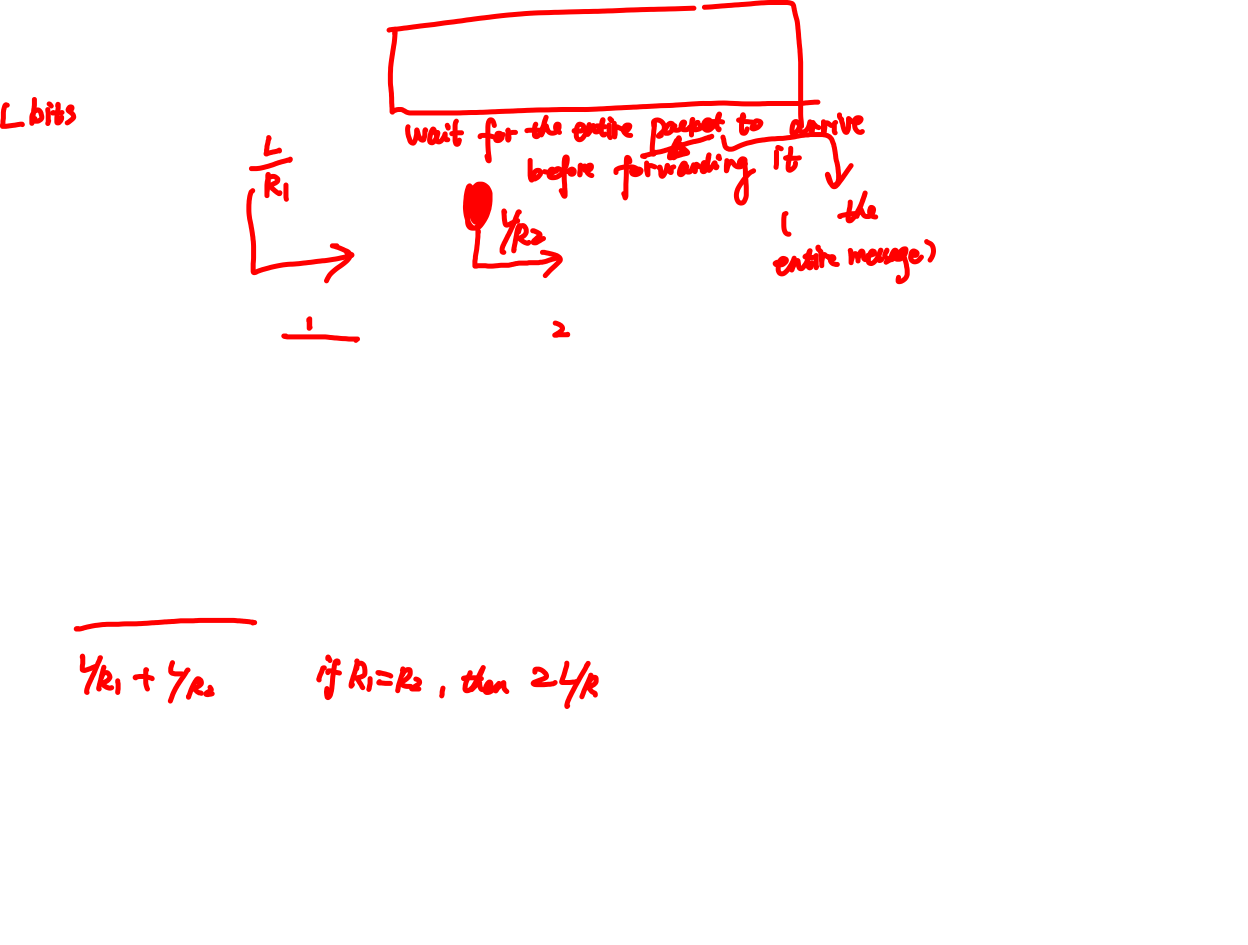 L bits
L
R1
wait for the entire packet to arrive
before forwarding it
L/R2
( the
entire message)
1
2
L/R1 + L/R2 if R1=R2, then 2L/R